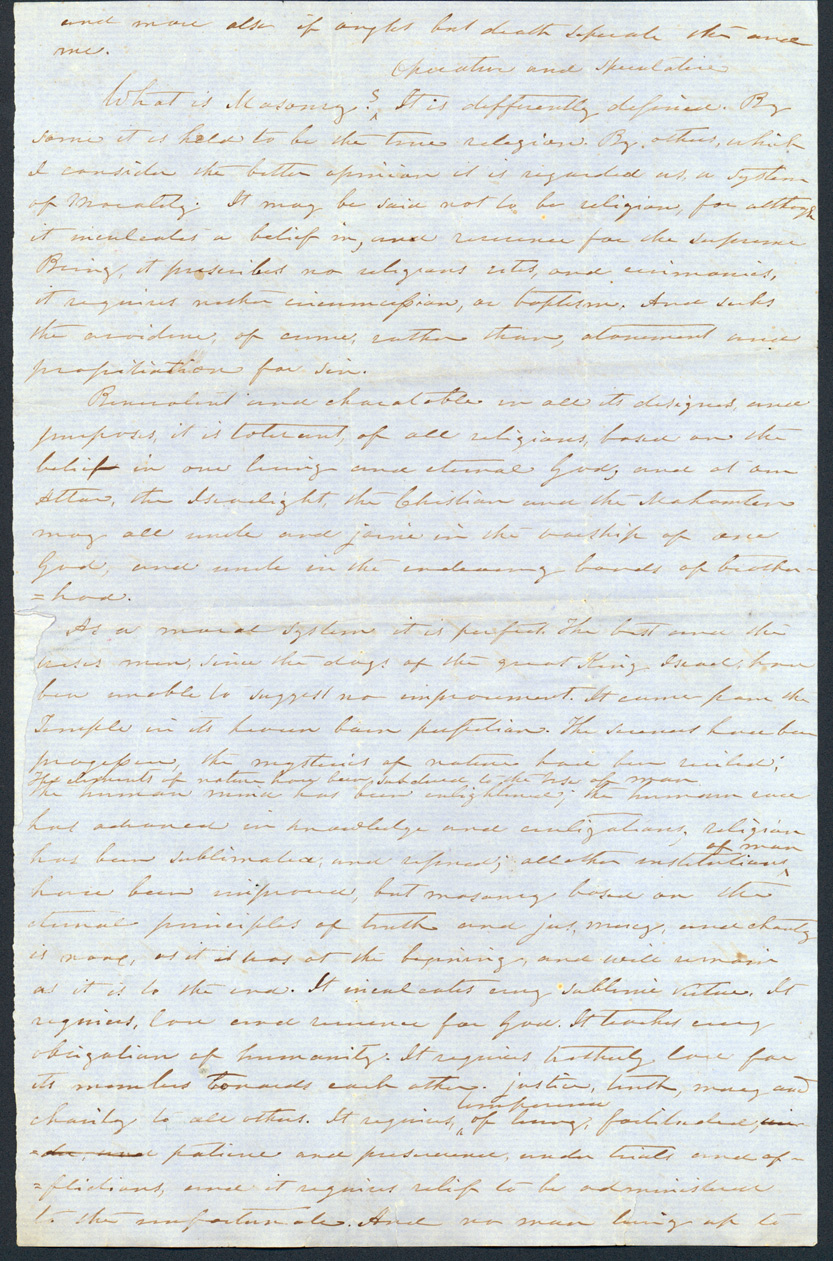 and more also if aught but death separate thee and
me.
Operative and Speculative
What is Masonry? It is differently defined. By
some it is held to be the true religion. By others, which
I consider the better opinion it is regarded as a System
of Morality. It may be said not to be religion, for although
it inculcates a belief in, and reverence for the Supreme
Being, it prescribes no religious rites, and cerimonies,
it requires neither circumcision, or baptism. And seeks
the avoidence, of crime, rather than, atonement and
propitiation for sin.
Benevolent and charatable in all its designs, and
purposes, it is tolerant, of all religions, based on the
belief in one living and eternal God; and at our
Altar, the Isrealight, the Christian and the Mahometen
may all unite and joine in the worship of one
God, and unite in the endearing bonds of brother-
=hood.
As a moral system it is perfect. The best and the
wises men, since the days of the great King Isreal, have
been unable to suggest no improvement. It came from the
Temple in its heaven born perfection. The sciences have been
progressive, the mysteries of nature have been veiled;
The elements of nature have been subdued to the use of man
the human mind has been enlightened; the human race
has advanced in knowledge and civilizations, religion
has been sublimated, and refined; all other institutions of man
have been improved, but masonry based on the
eternal principles of truth and jus, mercy, and charity
is now, as it was at the begining, and will remain
as it is to the end. It inculcates every sublime virtue. It
requires, love and reverence for God. It teaches every
obligation of humanity. It requires brotherly love for
its members towards each other. justice, truth, mercy and
charity to all others. It requires, temperence of living, fortitude,
patience and perseverence, under trials and af-
=flictions, and it requires relief to be administered
to the unfortunate. And no man living up to